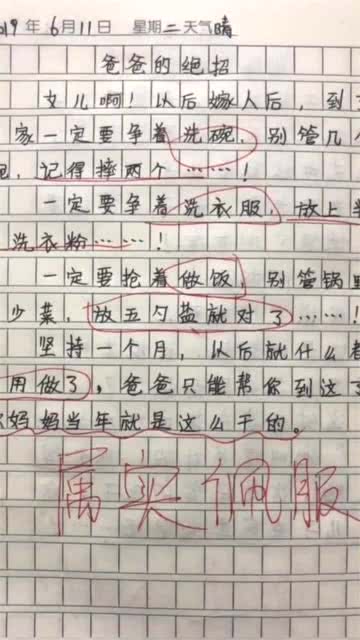 19年6月11日 星期二天气晴
爸爸的绝招
女儿啊!以后嫁人后,到了
家一定要争着洗碗,别管几个
,记得摔两个……!
一定要争着洗衣服,放上半
洗衣粉……!
一定要抢着做饭,别管锅里
少菜,放五勺盐就对了……!
坚持一个月,以后就什么都
用做了。爸爸只能帮你到这了
妈妈当年就是这么干的。
属实佩服